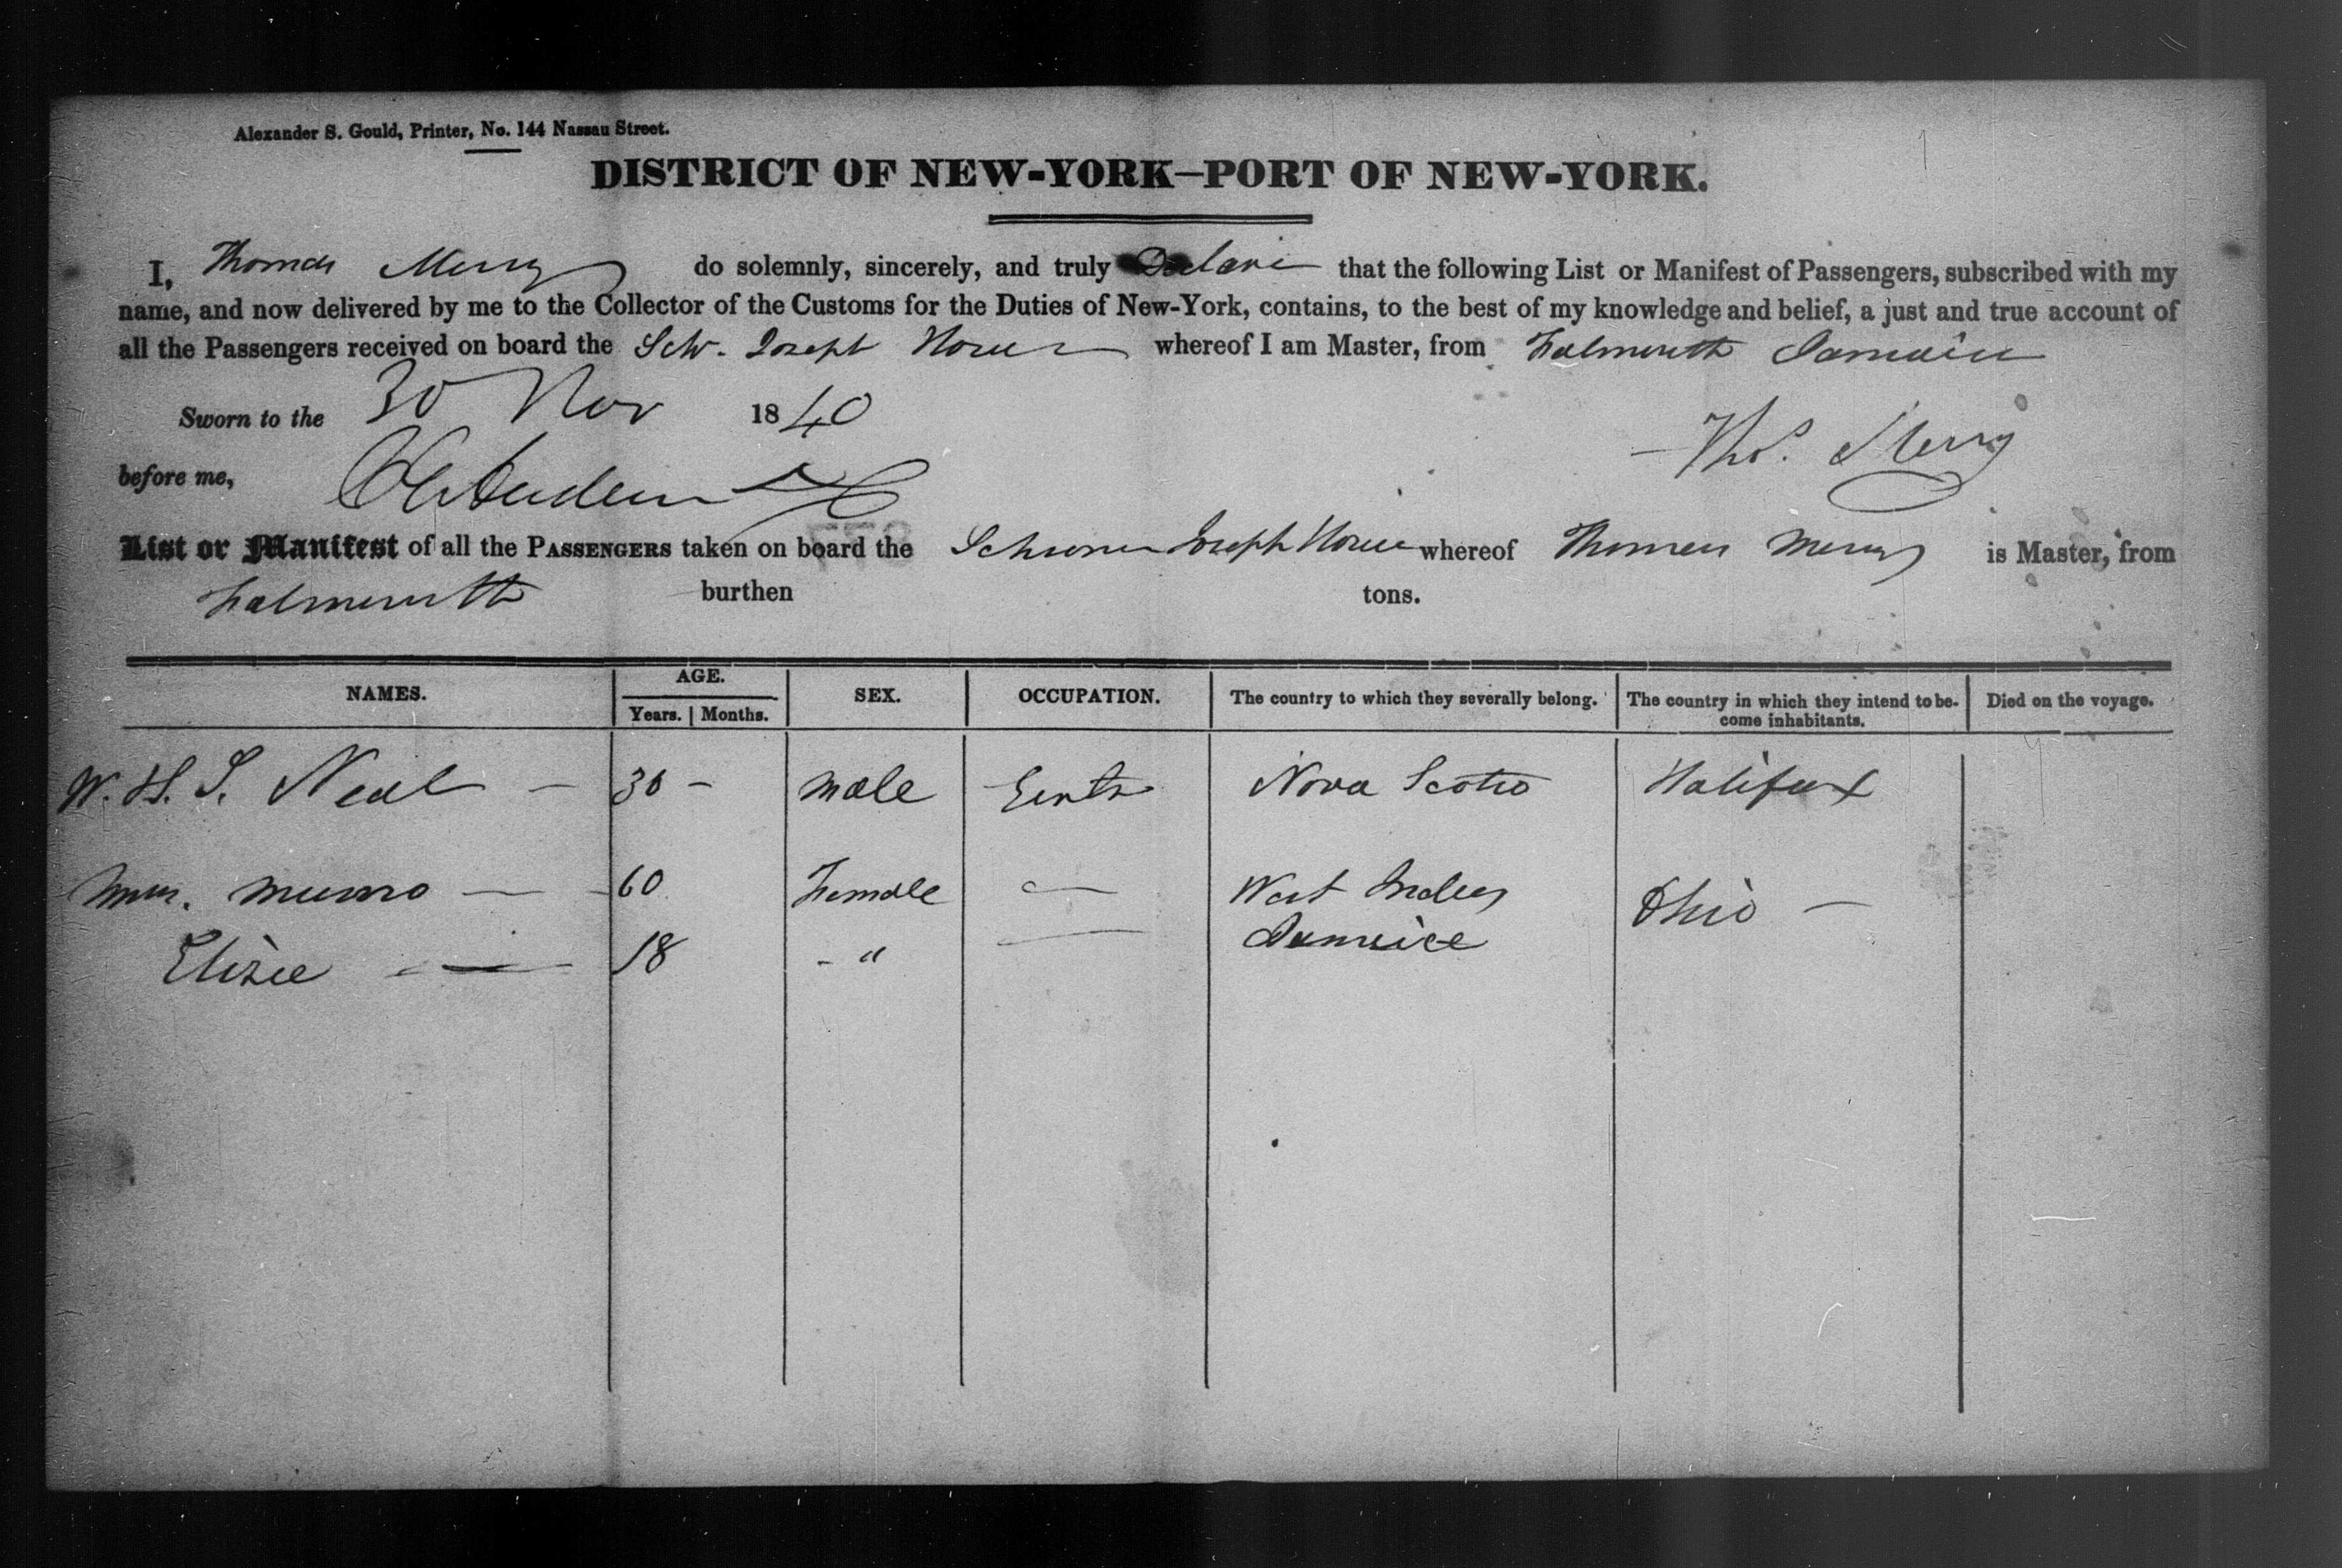 Alexander S. Gould, Printer, No. 144 Nassau Street.
DISTRICT OF NEW-YORK—PORT OF NEW-YORK.
I, Thomas Merry do solemnly, sincerely, and truly Declare that the following List or Manifest of Passengers, subscribed with my
name, and now delivered by me to the Collector of the Customs for the Duties of New-York, contains, to the best of my knowledge and belief, a just and true account of
all the Passengers received on board the Schr. Joseph whereof I am Master, from Falmouth Jamaica
Sworn to the 30 Nov 1840
Thos. Merry
before me,
List or Manifest of all the PASSENGERS taken on board the Schooner Joseph whereof Thomas Merry is Master, from
Falmouth burthen tons.
NAMES. AGE. SEX. OCCUPATION. The country to which they severally belong. The country in which they intend to be- Died on the voyage.
Years. Months. come inhabitants.
W. H. S. Neal — 30 — Male Gents Nova Scotia Halifax
Munro — — 60 Female — West Indies Ohio —
Eliza — — 18 - " — Jamaica